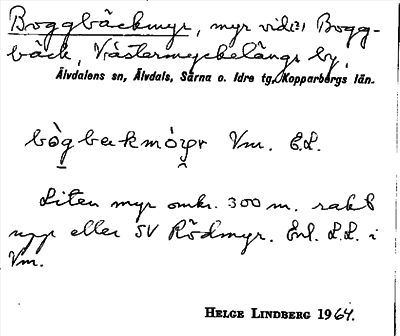 Boggbäckmyr, myr vid(?) Bogg-
bäck, Västermyckelängs by,
Älvdalens sn, Älvdals, Särna o. Idre tg, Kopparbergs län.
bògbɐkmò̀yr Vm. E.L.
Liten myr omkr. 300 m. rakt
upp eller SV Rödmyr. Enl. L.L. i
Vm.
HELGE LINDBERG 1964.